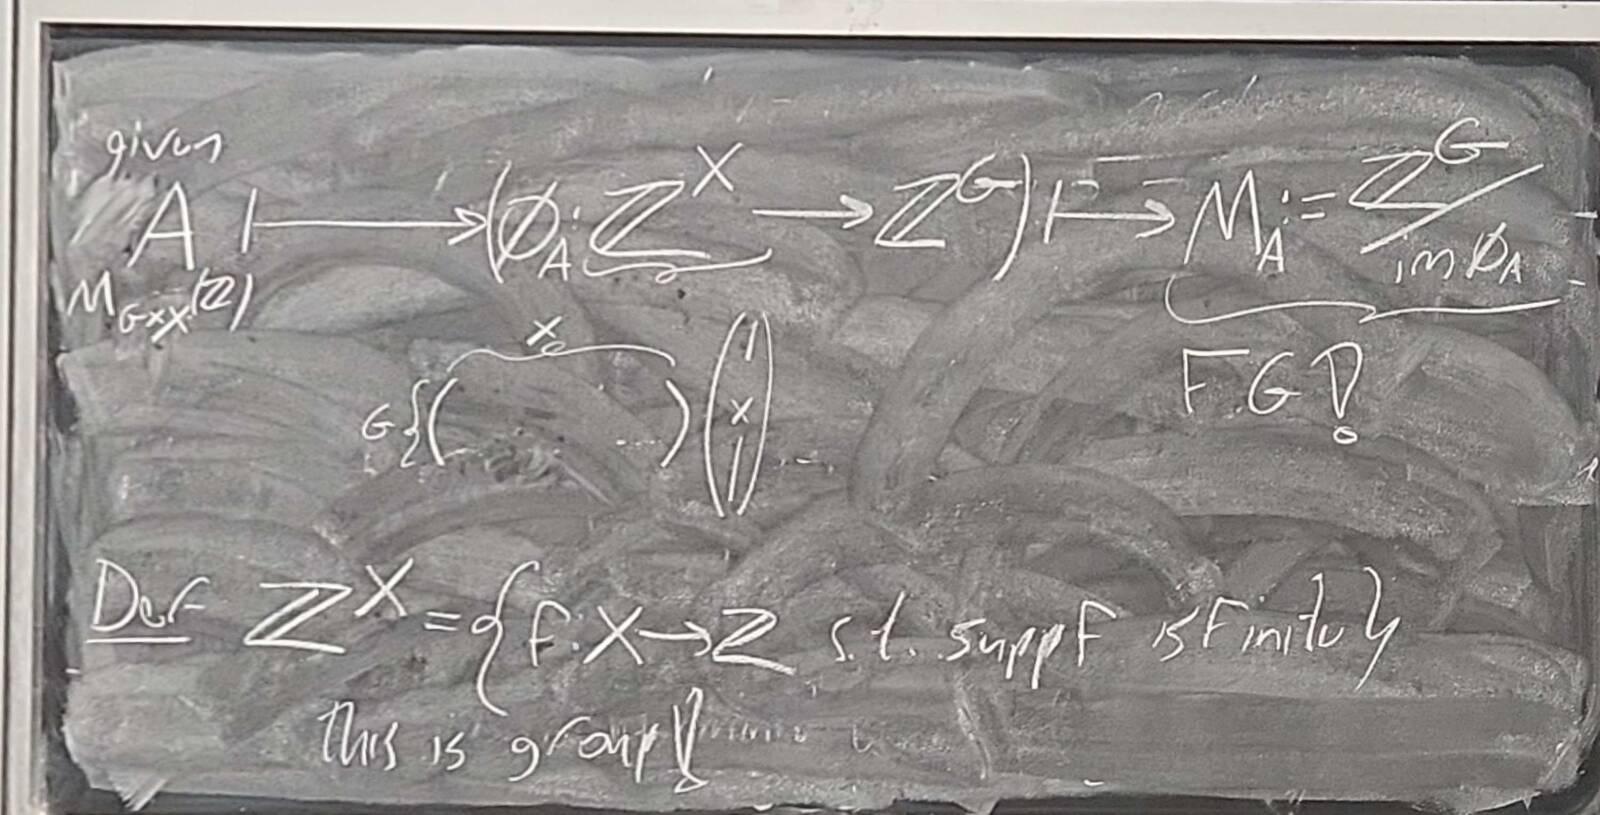 given
A ↦ (ϕ_A: ℤ^X → ℤ^G) ↦ M_A := ℤ^G / im ϕ_A
M_{G×X}(ℤ)
F.G!
G{( ..... )(x)
Def ℤ^X = {f: X → ℤ s.t. supp f is finite}
this is group!